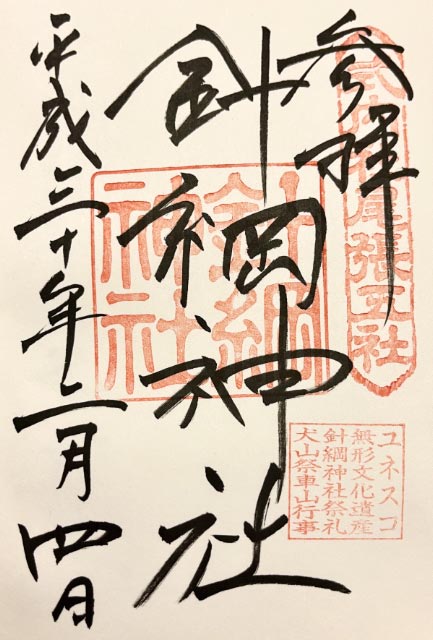 参拝
針綱神社
平成三十年二月四日
尾張五社
針綱
神社
ユネスコ
無形文化遺産
針綱神社祭礼
犬山祭車山行事